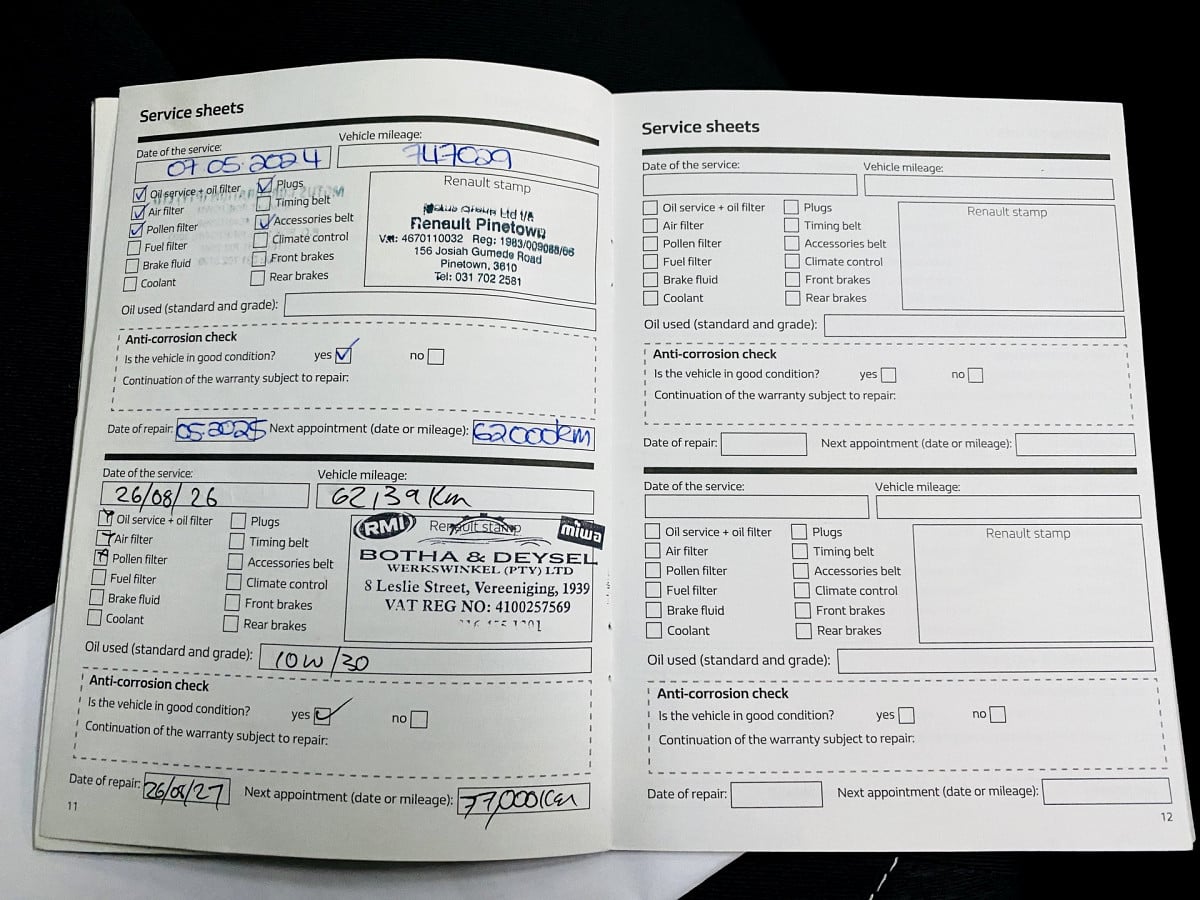 Service sheets
Date of the service:
Vehicle mileage:
07 05 2024
747029
Oil service + oil filter
Plugs
Air filter
Timing belt
Pollen filter
Accessories belt
Fuel filter
Climate control
Brake fluid
Front brakes
Coolant
Rear brakes
Renault stamp
Ltd t/a
Renault Pinetown
Vat: 4670110032 Reg: 1983/009088/06
156 Josiah Gumede Road
Pinetown, 3610
Tel: 031 702 2581
Oil used (standard and grade):
Anti-corrosion check
Is the vehicle in good condition? yes no
Continuation of the warranty subject to repair:
Date of repair: 05.2025 Next appointment (date or mileage): 62000km
Date of the service:
Vehicle mileage:
26/08/26
62139 Km
Oil service + oil filter
Plugs
Air filter
Timing belt
Pollen filter
Accessories belt
Fuel filter
Climate control
Brake fluid
Front brakes
Coolant
Rear brakes
RMI Renault stamp miwa
BOTHA & DEYSEL
WERKSWINKEL (PTY) LTD
8 Leslie Street, Vereeniging, 1939
VAT REG NO: 4100257569
Oil used (standard and grade): 10W/30
Anti-corrosion check
Is the vehicle in good condition? yes no
Continuation of the warranty subject to repair:
Date of repair: 26/08/27 Next appointment (date or mileage): 77,000 Km
11
Service sheets
Date of the service:
Vehicle mileage:
Oil service + oil filter
Plugs
Air filter
Timing belt
Pollen filter
Accessories belt
Fuel filter
Climate control
Brake fluid
Front brakes
Coolant
Rear brakes
Renault stamp
Oil used (standard and grade):
Anti-corrosion check
Is the vehicle in good condition? yes no
Continuation of the warranty subject to repair:
Date of repair: Next appointment (date or mileage):
Date of the service:
Vehicle mileage:
Oil service + oil filter
Plugs
Air filter
Timing belt
Pollen filter
Accessories belt
Fuel filter
Climate control
Brake fluid
Front brakes
Coolant
Rear brakes
Renault stamp
Oil used (standard and grade):
Anti-corrosion check
Is the vehicle in good condition? yes no
Continuation of the warranty subject to repair:
Date of repair: Next appointment (date or mileage):
12